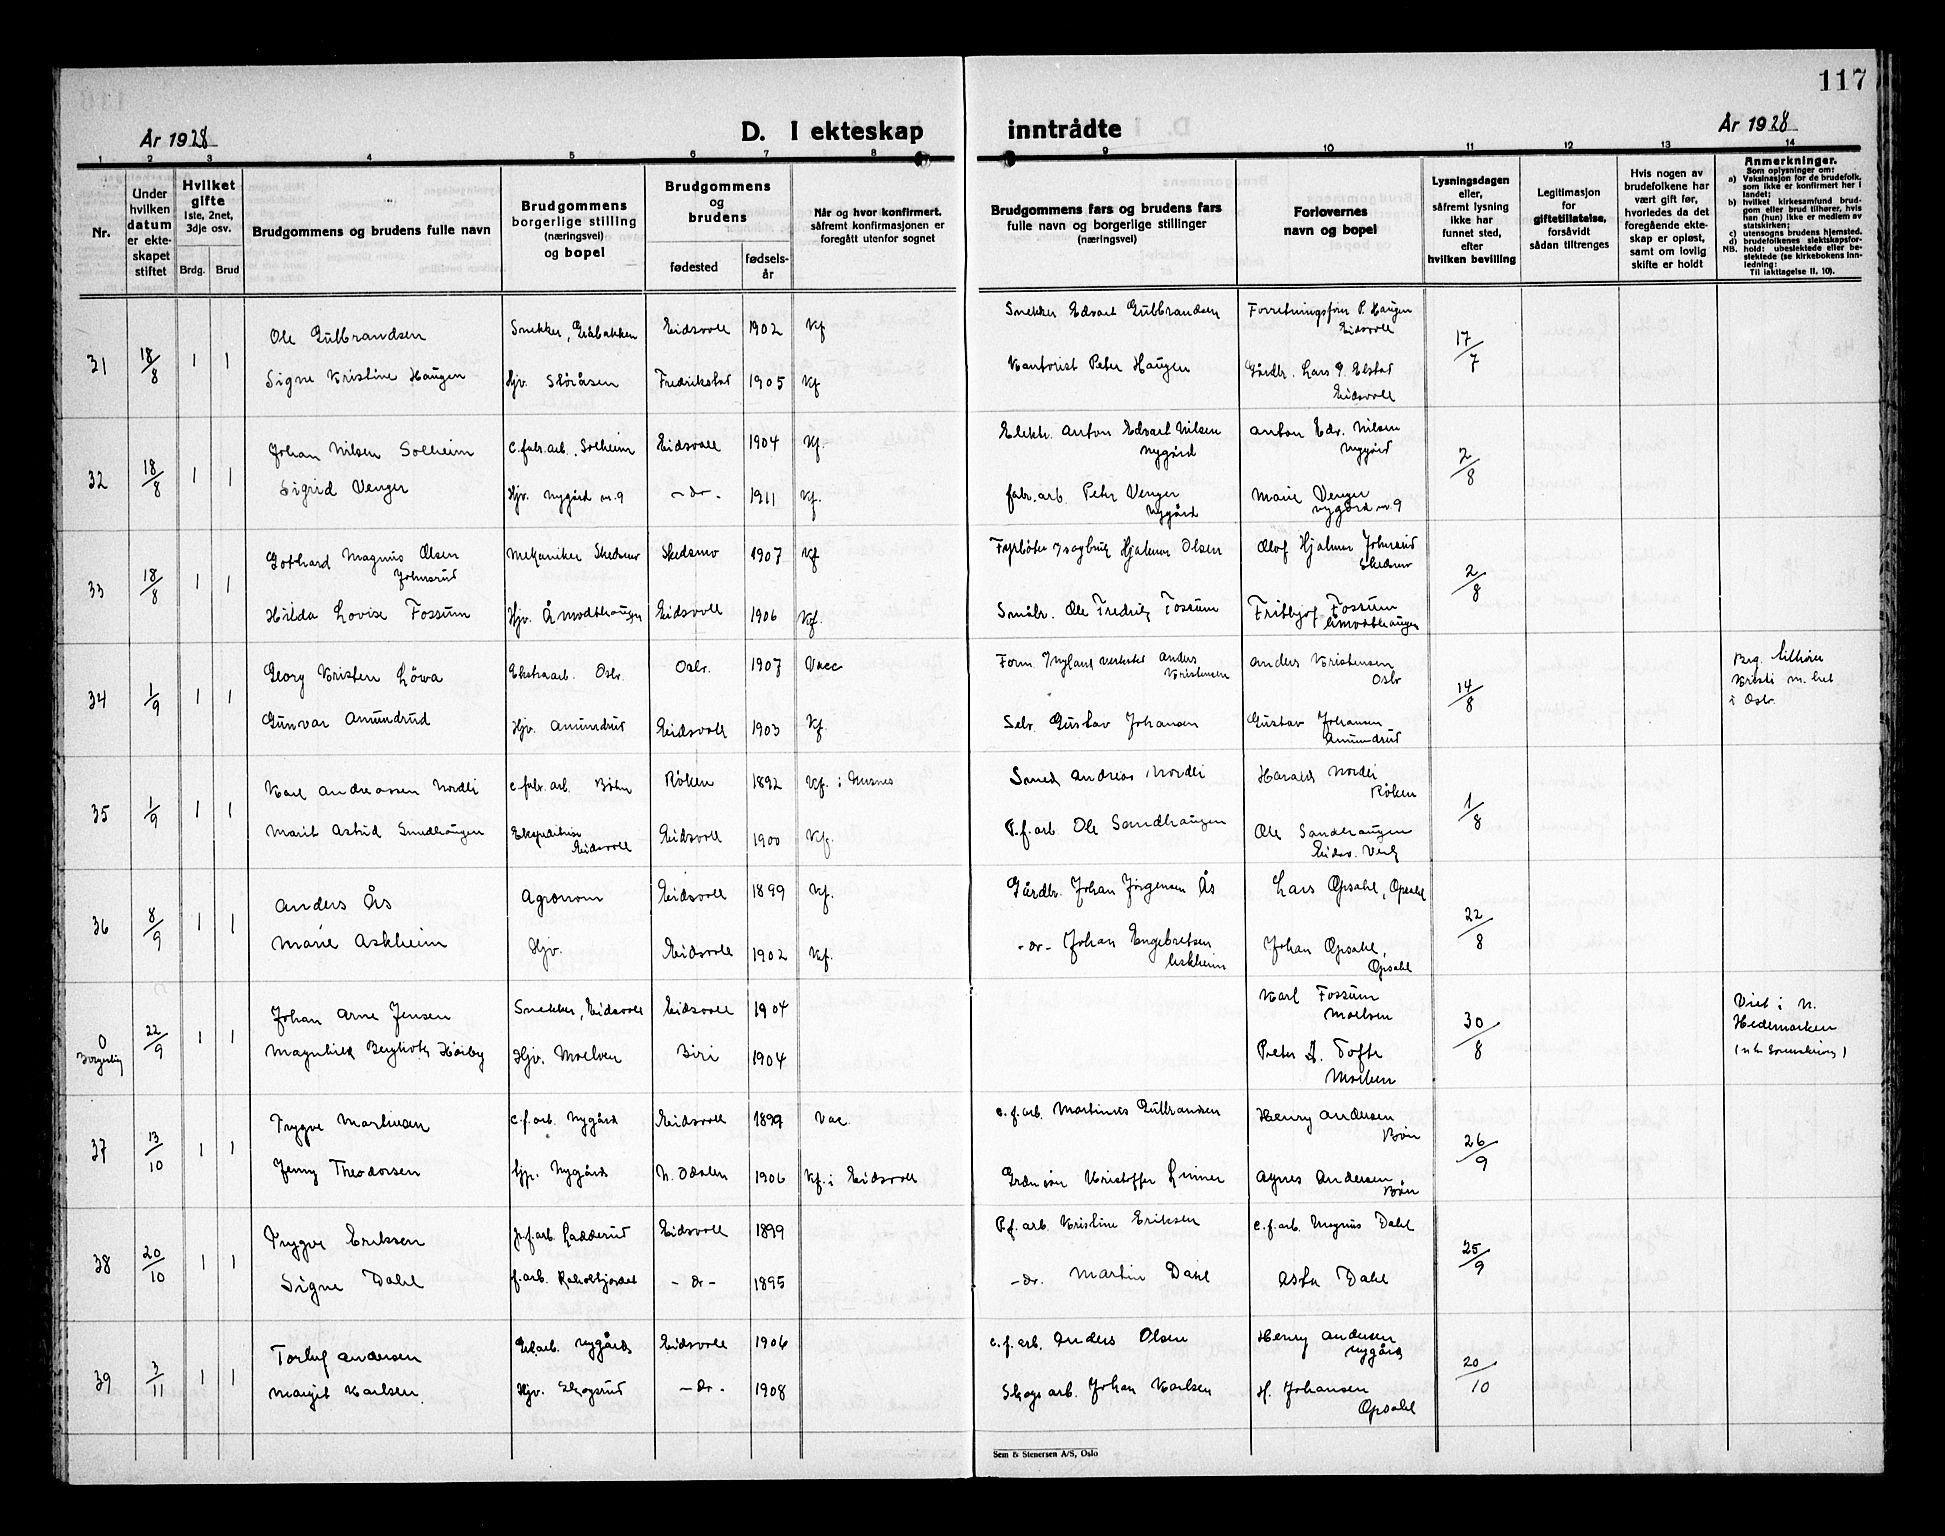 117
År 1928
D. I ekteskap
inntrådte
År 1928
1 2 3 4 5 6 7 8 9 10 11 12 13 14
Nr.
Under hvilken datum er ekteskapet stiftet
Hvilket gifte
Iste, 2net, 3dje osv.
Brdg. Brud
Brudgommens og brudens fulle navn
Brudgommens borgerlige stilling (næringsvei) og bopel
Brudgommens og brudens
fødested
fødselsår
Når og hvor konfirmert, såfremt konfirmasjonen er foregått utenfor sognet
Brudgommens fars og brudens fars fulle navn og borgerlige stillinger (næringsvei)
Forlovernes navn og bopel
Lysningsdagen eller, såfremt lysning ikke har funnet sted, efter hvilken bevilling
Legitimasjon for giftetillatelse, forsåvidt sådan tiltrenges
Hvis nogen av brudefolkene har vært gift før, hvorledes da det foregående ekteskap er opløst, samt om lovlig skifte er holdt
Anmerkninger.
Som oplysninger om:
a) Vaksinasjon for de brudefolk, som ikke er konfirmert her i landet;
b) hvilket kirkesamfund brudgom eller brud tilhører, hvis han (hun) ikke er medlem av statskirken;
c) utensogns brudens hjemsted.
d) brudefolkenes slektskapsforhold: ubeslektede eller beslektede (se kirkebokens innledning:
NB.
Til iakttagelse II, 10).
31 18/8 1 1 Ole Gulbrandsen Snekker, Gråbakken Eidsvoll 1902 Kf Snekker Edvart Gulbrandsen Forretningsfører P. Haugen Eidsvoll 17/7
Signe Kristine Haugen Hjv. Slöråsen Fredrikstad 1905 Kf Kontorist Peter Haugen Gårdbr. Lars P. Elstad Eidsvoll
32 18/8 1 1 Johan Nilsen Solheim c. fabr. arb., Solheim Eidsvoll 1904 Kf. Elektr. Anton Edvart Nilsen Nygård Anton Edv. Nilsen Nygård 2/8
Sigrid Venger Hjv. Nygård nr. 9 - do - 1911 Kf. fabr. arb. Peter Venger Nygård Marie Venger Nygård nr. 9
33 18/8 1 1 Gotthard Magnus Olsen Johnsrud Mekaniker Skedsmo Skedsmo 1907 Kf Fyrböter Hjalmar Olsen Olof Hjalmar Johnsrud Skedsmo 2/8
Hilda Lovise Fossum Hjv. Åmodthaugen Eidsvoll 1906 Kf. Småbr. Ole Fredrik Fossum Fritbjof Fossum Åmodthaugen
34 1/9 1 1 Georg Kristen Löwa Ekstraarb. Oslo Oslo 1907 Vacc Form. Myland verksted Anders Kristensen Anders Kristensen Oslo 14/8 Brg. tilhører i Oslo
Gunvar Amundrud Hjv. Amundrud Eidsvoll 1903 Kf. Selv. Gustav Johansen Gustav Johansen Amundrud
35 1/9 1 1 Karl Andreassen Nordli c. fabr. arb. Böhn Røken 1892 Kf. i Smed Andreas Nordli Harald Nordli Røken 1/8
Marit Astrid Sandhaugen Ekspeditrise Eidsvoll Eidsvoll 1900 Kf. P. f. arb Ole Sandhaugen Ole Sandhaugen Eidsv. Verk
36 8/9 1 1 Anders Ås Agronom Eidsvoll 1899 Kf. Gårdbr. Johan Jörgensen Ås Lars Opsahl, Opsahl 22/8
Marie Askheim Hjv. Eidsvoll 1902 Kf. - do - Johan Engebretsen Askheim Johan Opsahl, Opsahl
0 Borgerlig 22/9 1 1 Johan Arne Jensen Snekker, Eidsvoll Eidsvoll 1904 Karl Fossum Moelven 30/8 Viet i N. Hedemarken
Høiby Hjv. Moelven Biri 1904 Peter A. Tofte Moelven
37 13/10 1 1 Trygve Martinsen c. f. arb. Nygård Eidsvoll 1899 Vac. c. f. arb. Martinus Gulbrandsen Henry Andersen Bön 26/9
Jenny Theodorsen Nygård N. Odalen 1906 Kf. i Eidsvoll Kristoffer Linner Agnes Andersen Bön
38 20/10 1 1 Trygve Eriksen p. f. arb. Ladderud Eidsvoll 1899 P. f. arb. Kristine Eriksen c. f. arb. Magnus Dahl 25/9
Signe Dahl f. arb. - do - 1895 - do. Martin Dahl Asta Dahl
39 3/11 1 1 Torluf Andersen Nygård Eidsvoll 1906 c. f. arb. Anders Olsen Henry Andersen Nygård 20/10
Margit Karlsen. Hjv. Skogsrud - do - 1908 Skogsarb. Johan Karlsen H. Johansen Opsahl
Sem & Stenersen A/S, Oslo